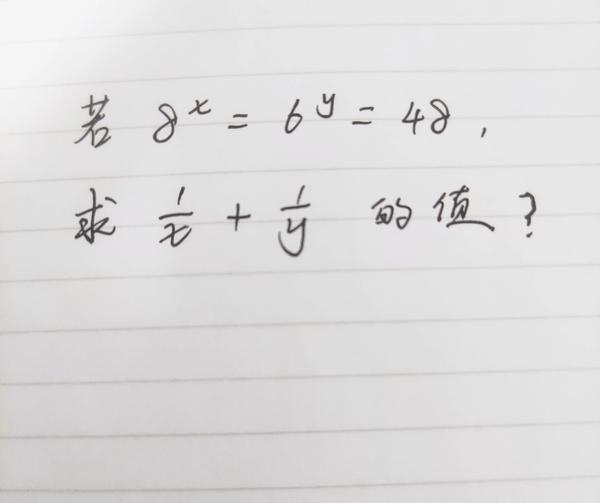 若 8^x = 6^y = 48,
求 1/x + 1/y 的值?